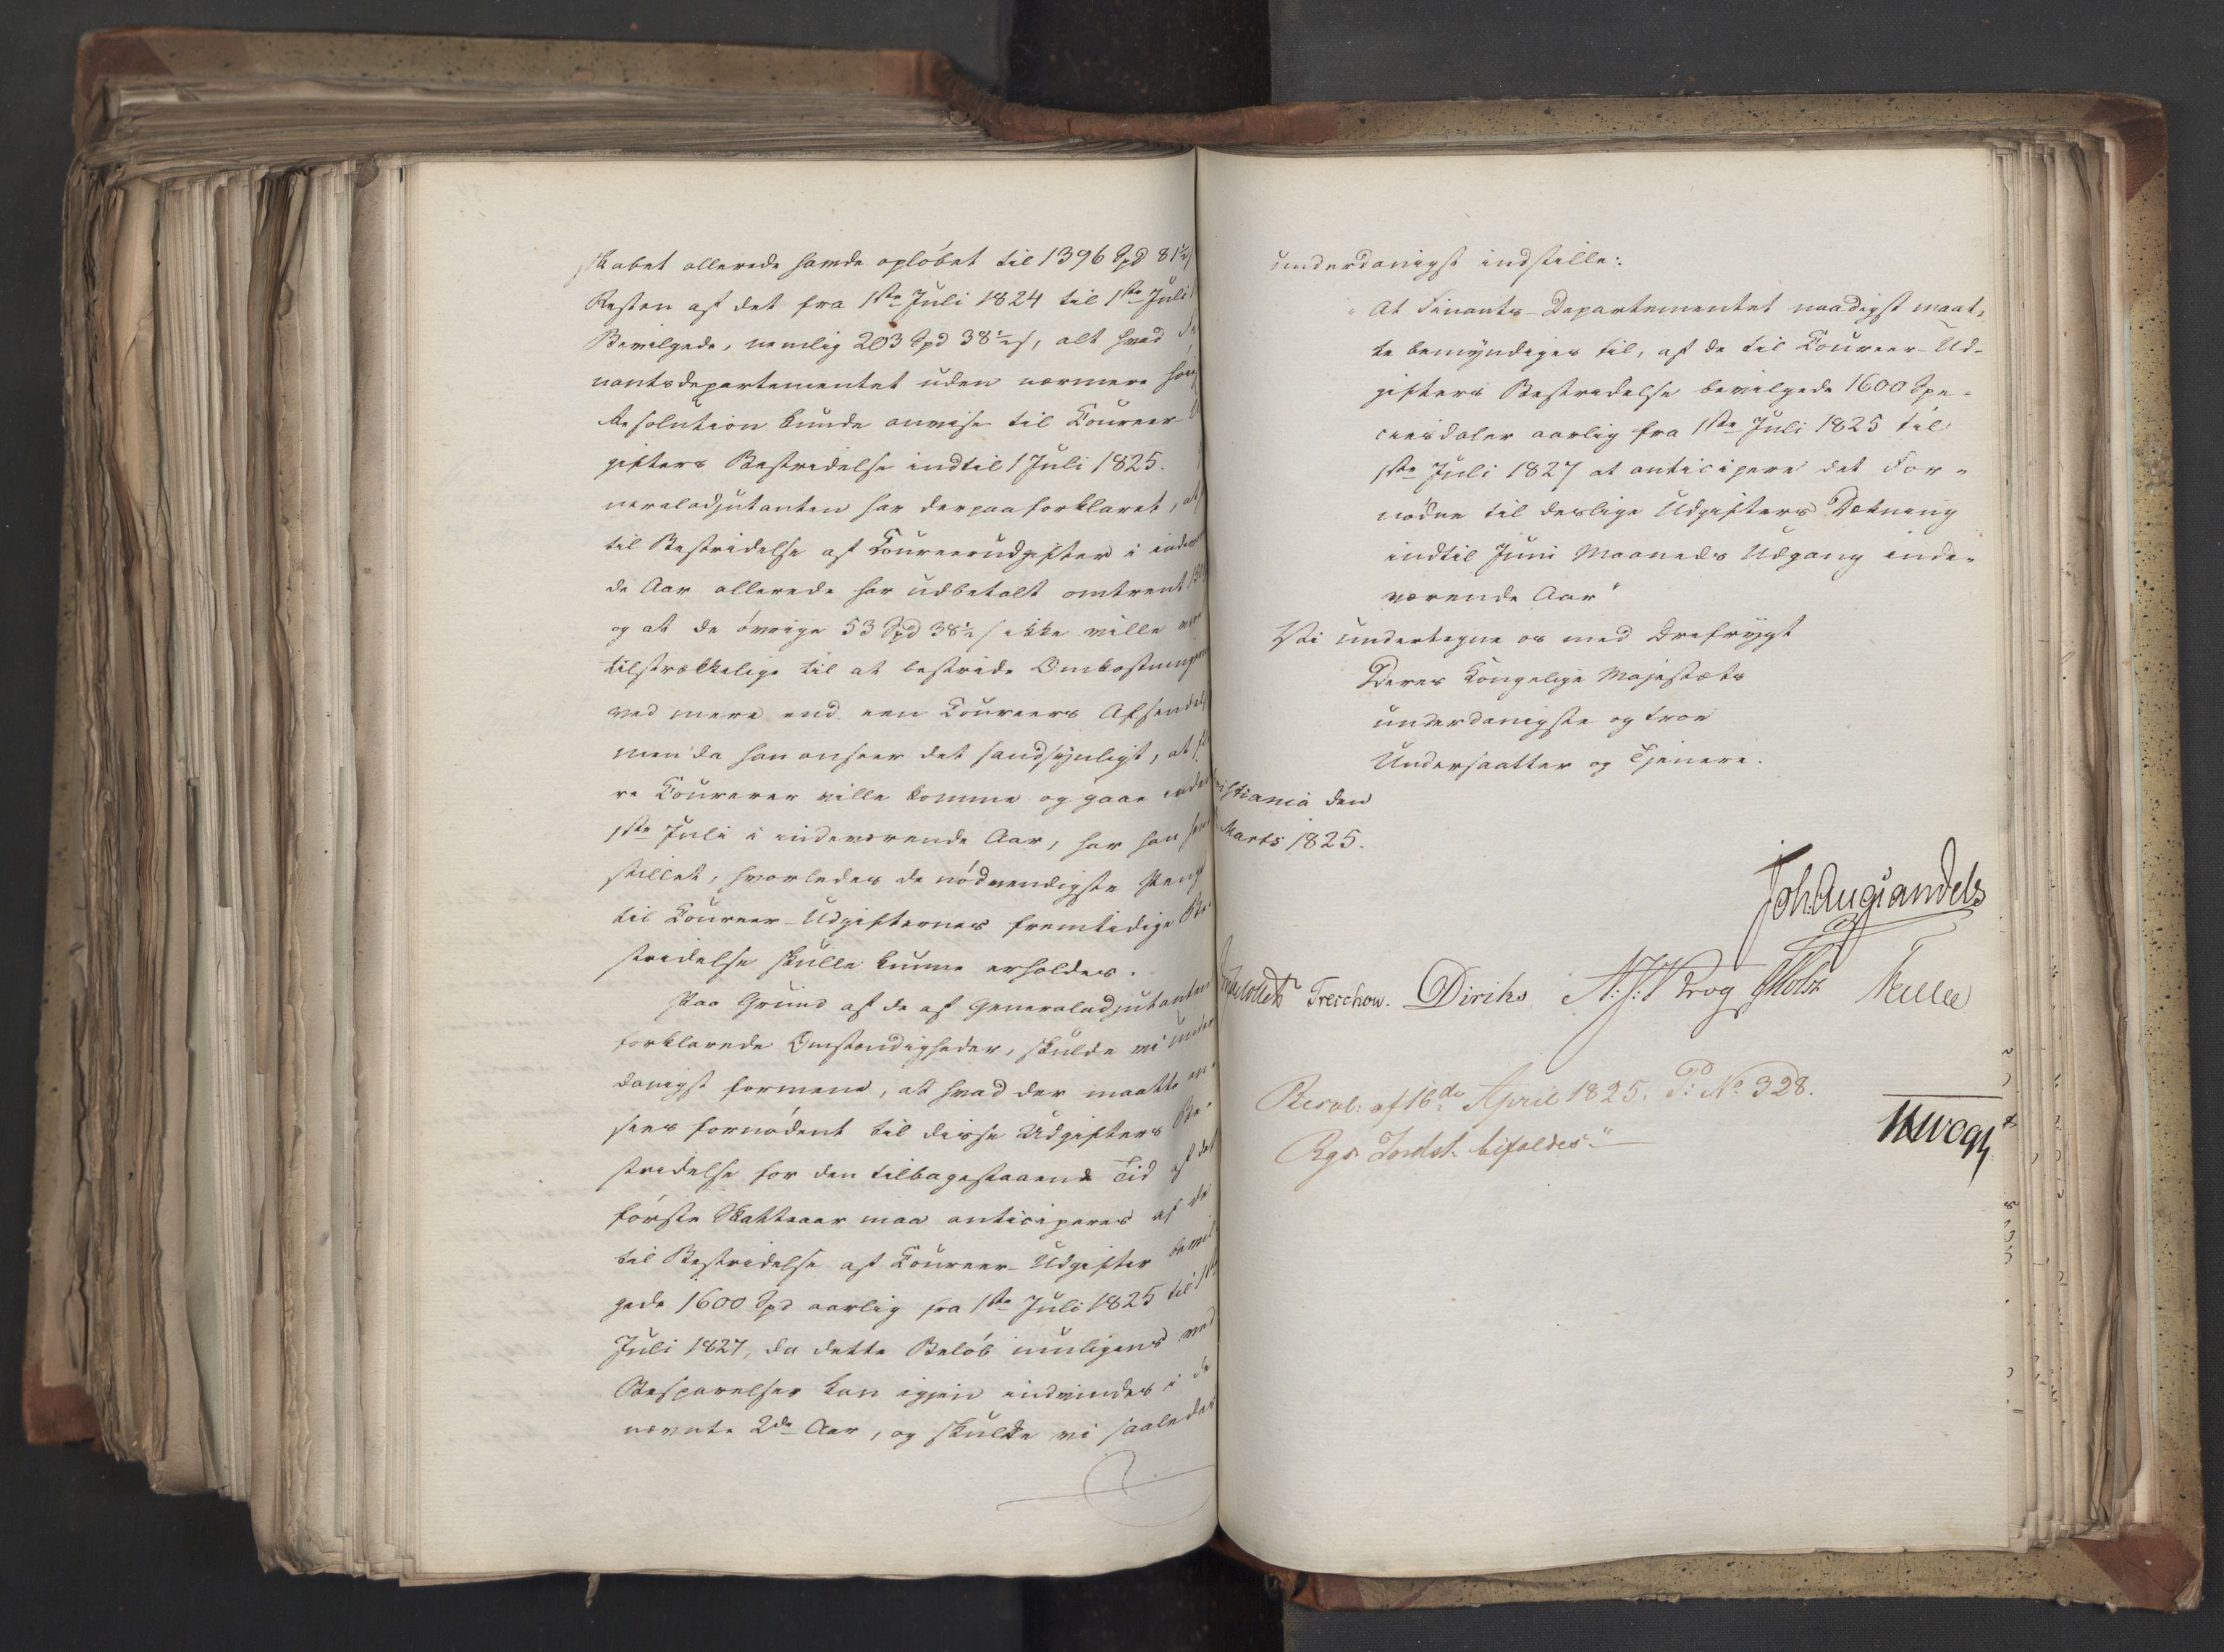 skabet allerede havde opløbet til 1396 Spd 81½
Resten af det fra 1ste Juli 1824 til 1ste Juli
Bevilgede, nemlig 203 Spd 38½ s, alt hvad
nantsdepartementet uden nærmere
Resolution kunde anvise til Coureer-
gifters Bestridelse indtil 1 Juli 1825.
neraladjutanten har derpaa forklaret, at
til Bestridelse af Coureerudgifter i
de Aar allerede har udbetalt omtrent
og at de øvrige 53 Spd 38½ s ikke ville
tilstrækkelige til at bestride
ved mere end een Coureers
men da han anseer det sandsynligt, at
re Coureerer ville komme og gaae
1ste Juli i indeværende Aar, har han
stillet, hvorledes de nødvendigste Penge
til Coureer-Udgifternes fremtidige Be-
stridelse skulle kunne erholdes.
Paa Grund af de af Generaladjutanten
forklarede Omstændigheder, skulde vi under
danigst formene, at hvad der maatte an-
sees fornødent til disse Udgifters Be-
stridelse for den tilbagestaaende Tid af det
første Skatteaar maa anticiperes af de
til Bestridelse af Coureer-Udgifter bevil
gede 1600 Spd aarlig fra 1ste Juli 1825 til 1ste
Juli 1827, da dette Beløb muligens ved
Besparelser kan igjen indvindes i de
nævnte 2de Aar, og skulde vi saaledes
underdanigst indstille:
"At Finants-Departementet naadigst maat-
te bemyndiges til, af de til Coureer-Ud-
gifters Bestridelse bevilgede 1600 Spe-
ciesdaler aarlig fra 1ste Juli 1825 til
1ste Juli 1827 at anticipere det For-
nødne til deslige Udgifters Dækning
indtil Juni Maaneds Udgang inde-
værende Aar"
Vi undertegne os med Ærefrygt
Deres Kongelige Majestæts
underdanigste og troe
Undersaatter og Tjenere.
istiania den
Marts 1825.
Joh. Aug Sandels
Collett Treschow. Diriks N: J: Krog Holst
Resol: af 16de April 1825. P: No 328.
Rgs Indst. bifaldes."